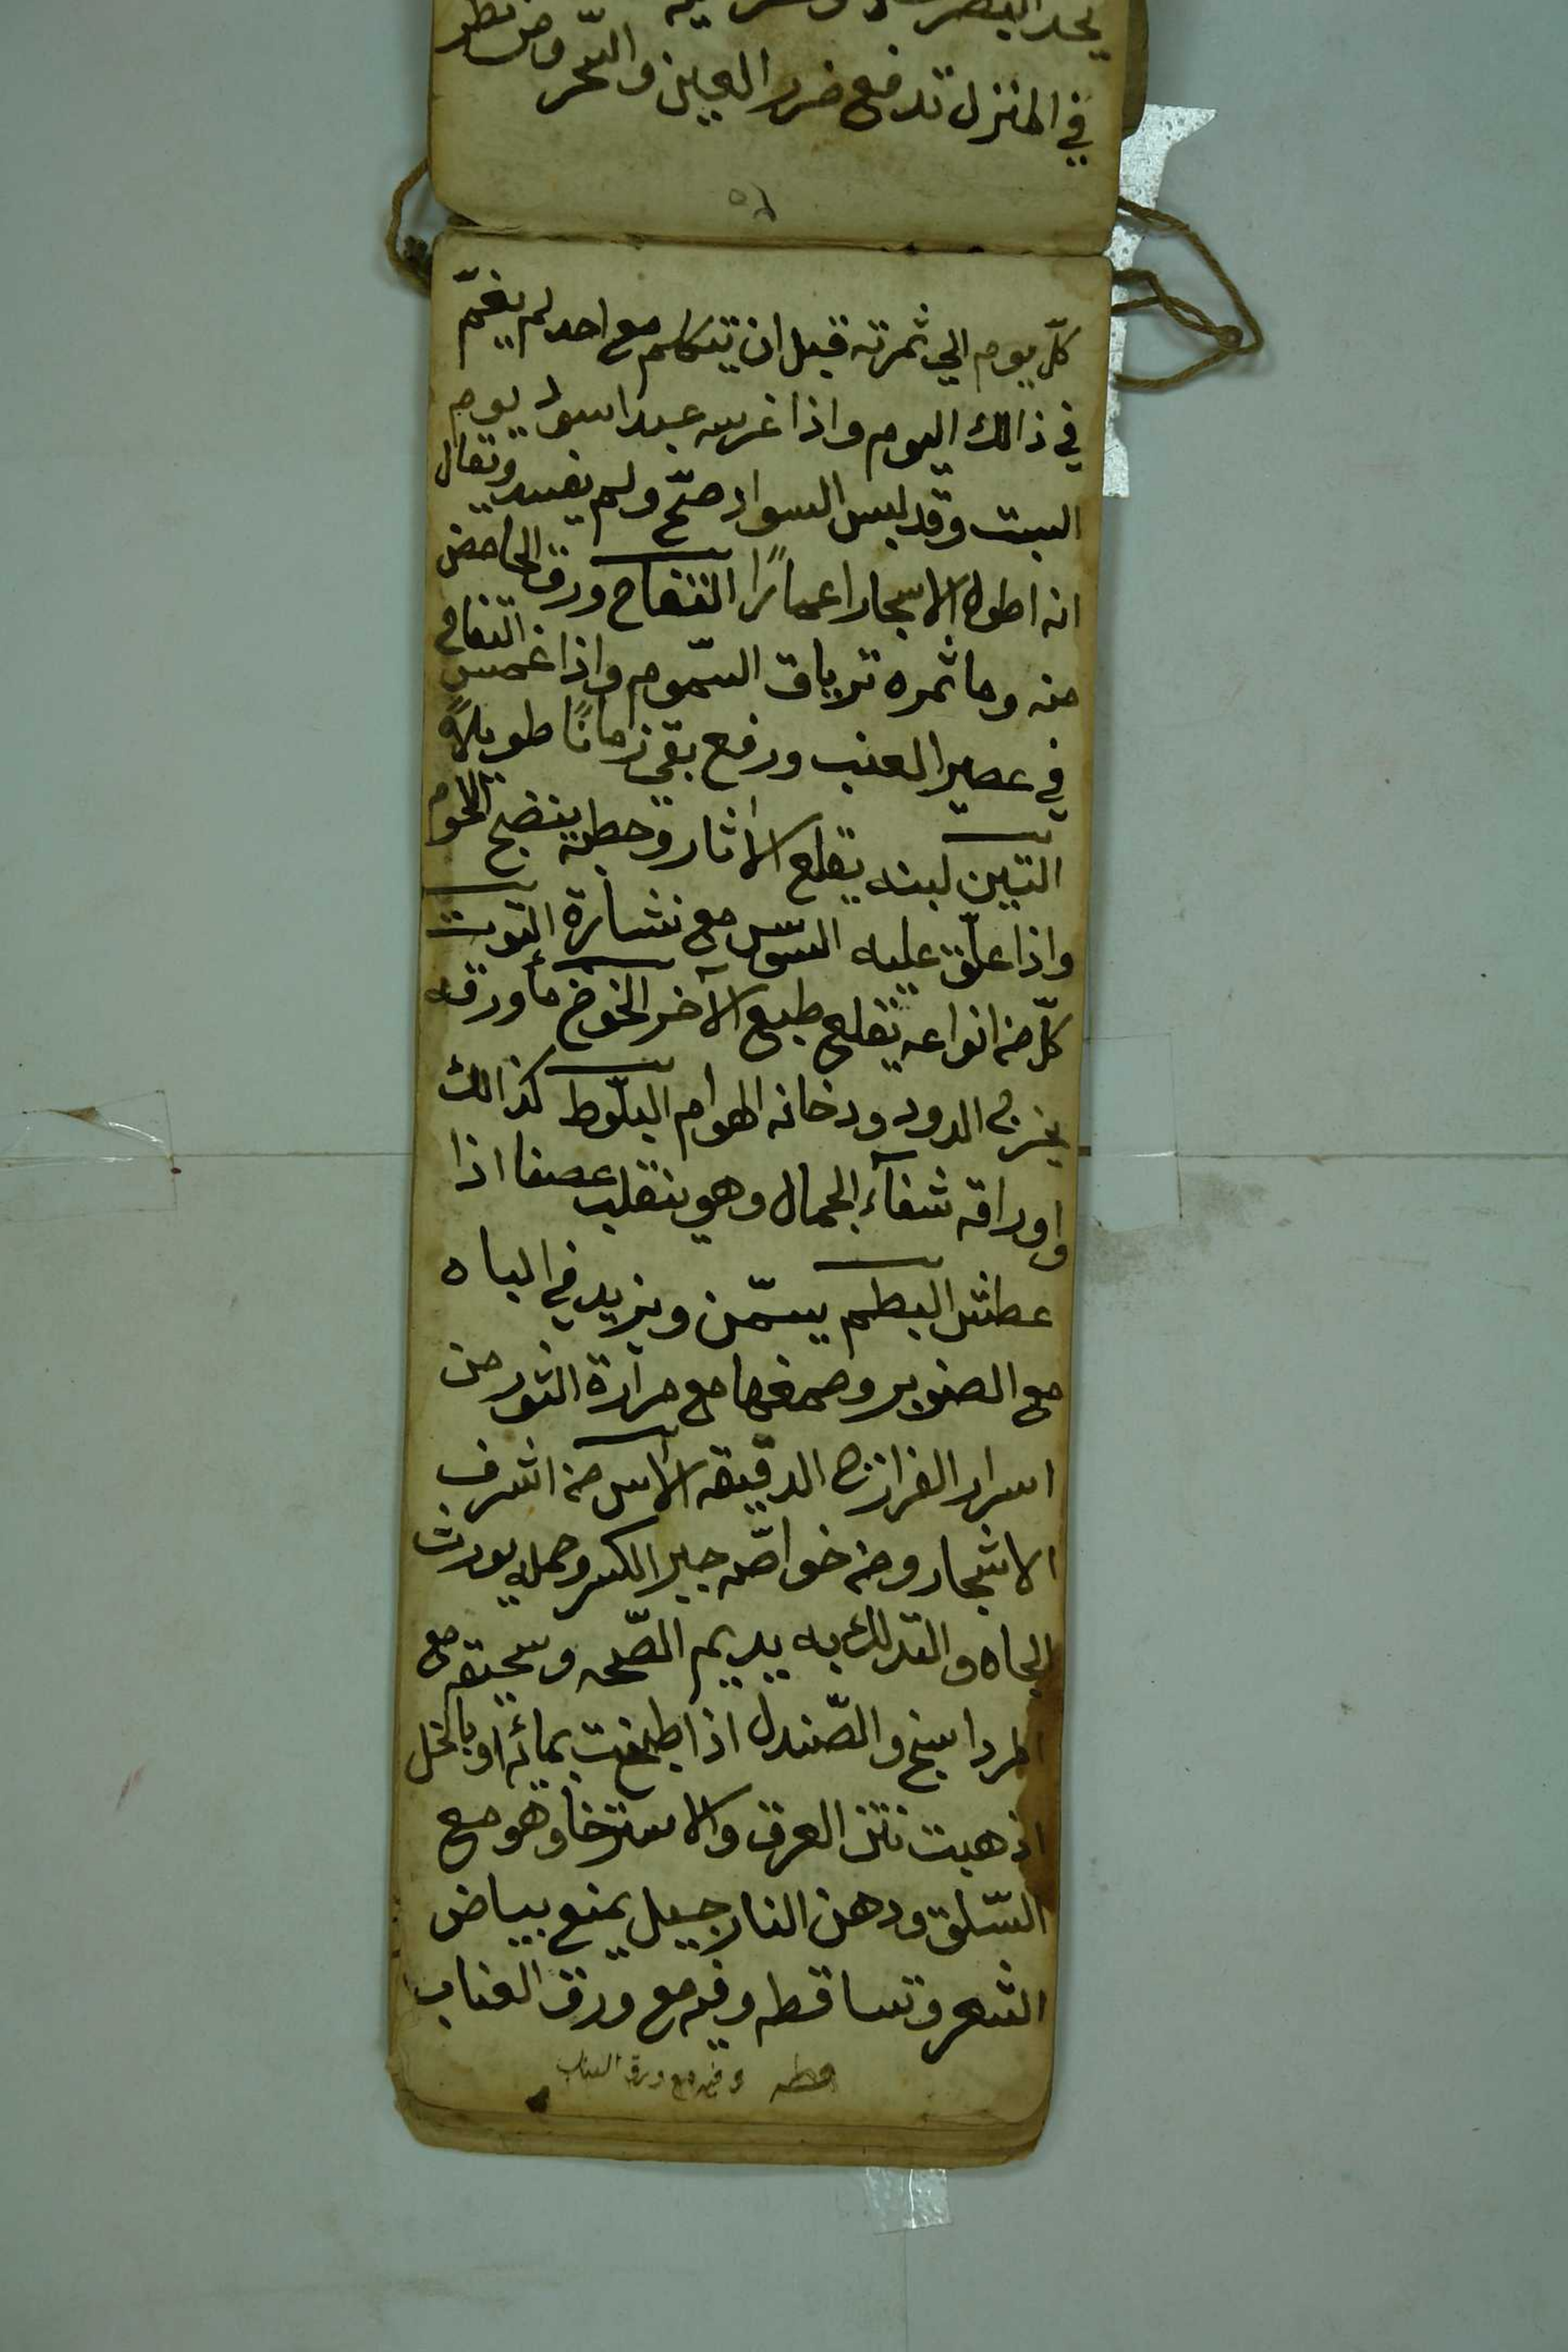 يحد البصر
في المنزل تدفع ضرر العين والسّحر ومن نظر
كلّ يوم الي ثمرته قبل ان يتكلم مع احد لم يغتمّ
في ذالك اليوم واذا غرسه عبد اسود يوم
السبت وقد لبس السواد صحّ ولم يفسد ويقال
انه اطول الاسجار اعمارًا التفاح ورق الحامض
منه وما ثمره ترياق السّموم واذا غمس التفاح
في عصير العنب ورفع بقي زمانًا طويلاً
التين لبنه يقلع الاثار وحطبه ينضج اللحوم
واذا علّق عليه السّوس مع نشارة التوت
كلّ من انواعه يقلع طبع الآخر الخوخ مأ ورقه
يخرج الدود ودخانه الهوام البلّوط كذالك
واوراقه شفآء الجمال وهو ينقلب عصفا اذا
عطش البطم يسمّن ويزيد في الباه
مع الصنوبر وصمغها مع مرارة الثور من
اسرار الفرازج الدقيقه الاس من اشرف
الاشجار ومن خواصّه جبر الكسر وحمله يورث
الجاه والتدلك به يديم الصّحه وسحيقه مع
المرداسنج والصّندل اذا طبخت بمائه او بالخل
اذهبت نتن العرق والاسترخا وهو مع
السّلق ودهن النارجيل يمنع بياض
الشعر وتساقطه وفيه مع ورق العناب
وفيه مع ورق العناب